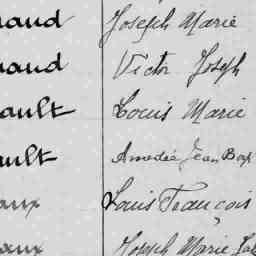 naud Joseph Marie
naud Victor Joseph
ault Louis Marie
ult Amédée Jean Bap
aux Louis François
aux Joseph Marie